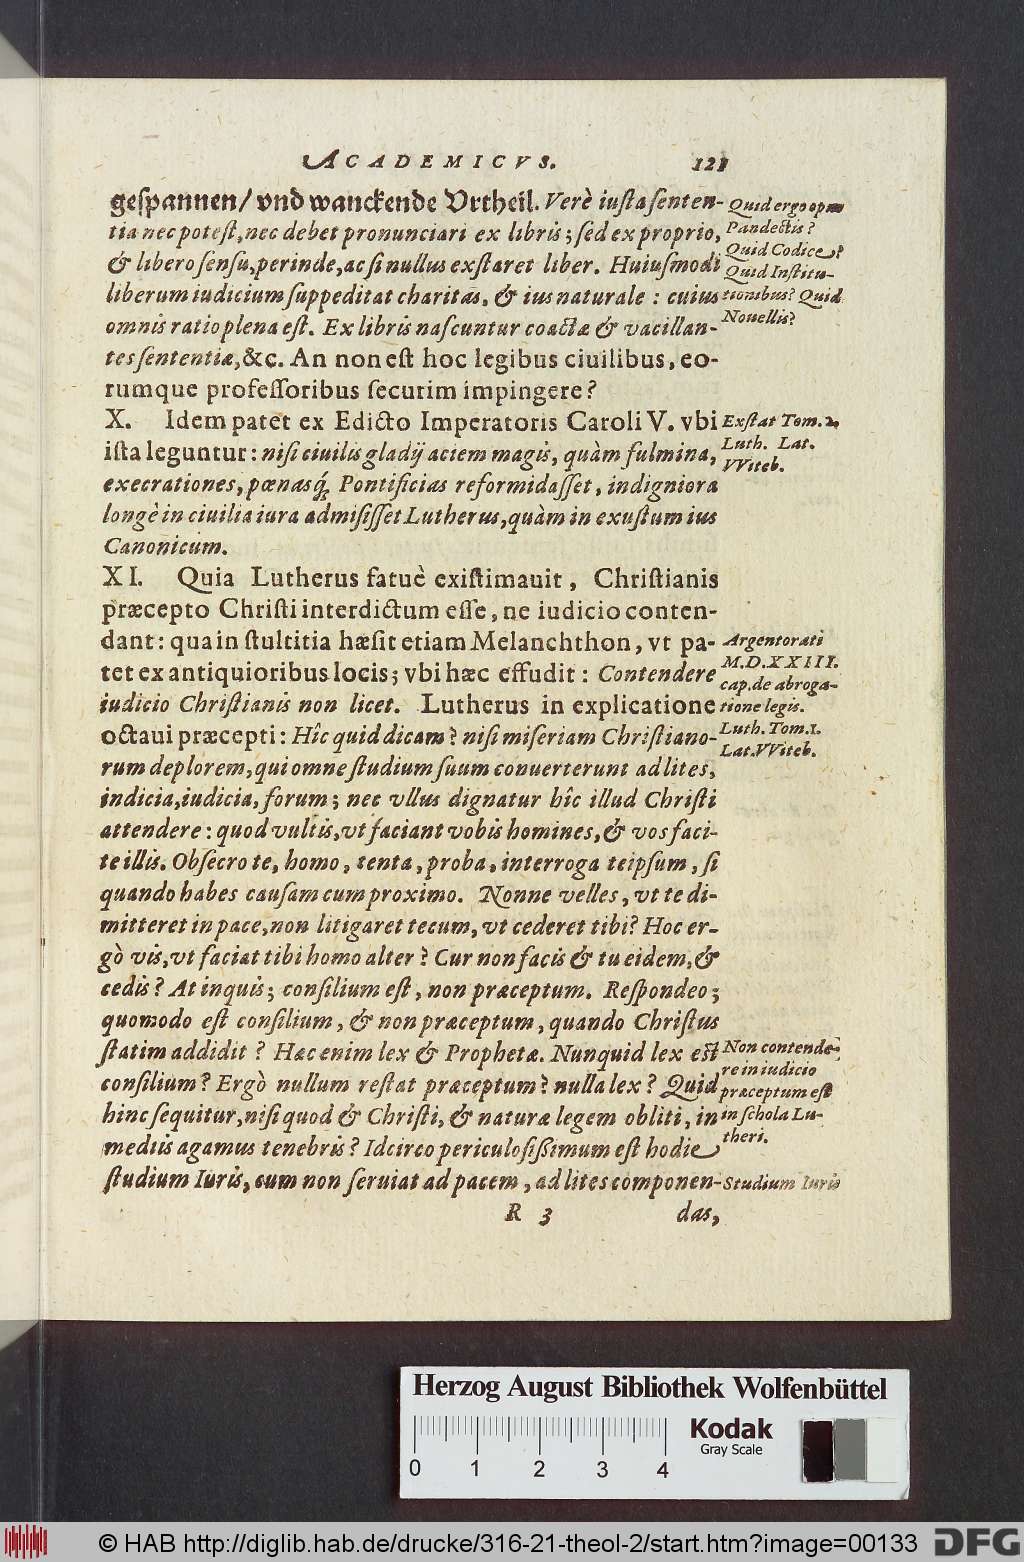 ACADEMICVS. 121
geſpannen/ vnd wanckende Vrtheil. Verè iuſta ſenten-
tia nec poteſt, nec debet pronunciari ex libris; ſed ex proprio,
& libero ſenſu, perinde, ac ſi nullus exſtaret liber. Huiuſmodi
liberum iudicium ſuppeditat charitas, & ius naturale: cuius
omnis ratio plena eſt. Ex libris naſcuntur coactæ & vacillan-
tes ſententiæ, &c. An non eſt hoc legibus ciuilibus, eo-
rumque profeſſoribus ſecurim impingere?
Quid ergo opus
Pandectis?
Quid Codice?
Quid Inſtitu-
tionibus? Quid
Nouellis?
X. Idem patet ex Edicto Imperatoris Caroli V. vbi
iſta leguntur: niſi ciuilis gladij aciem magis, quàm fulmina,
execrationes, pœnasq́; Pontificias reformidaſſet, indigniora
longè in ciuilia iura admiſiſſet Lutherus, quàm in exuſtum ius
Canonicum.
Exſtat Tom. 2.
Luth. Lat.
VViteb.
XI. Quia Lutherus fatuè exiſtimauit, Chriſtianis
præcepto Chriſti interdictum eſſe, ne iudicio conten-
dant: qua in ſtultitia hæſit etiam Melanchthon, vt pa-
tet ex antiquioribus locis; vbi hæc effudit: Contendere
iudicio Chriſtianis non licet. Lutherus in explicatione
octaui præcepti: Hîc quid dicam? niſi miſeriam Chriſtiano-
rum deplorem, qui omne ſtudium ſuum conuerterunt ad lites,
indicia, iudicia, forum; nec vllus dignatur hîc illud Chriſti
attendere: quod vultis, vt faciant vobis homines, & vos faci-
te illis. Obſecro te, homo, tenta, proba, interroga teipſum, ſi
quando habes cauſam cum proximo. Nonne velles, vt te di-
mitteret in pace, non litigaret tecum, vt cederet tibi? Hoc er-
gò vis, vt faciat tibi homo alter? Cur non facis & tu eidem, &
cedis? At inquis; conſilium eſt, non præceptum. Reſpondeo;
quomodo eſt conſilium, & non præceptum, quando Chriſtus
ſtatim addidit? Hæc enim lex & Prophetæ. Nunquid lex eſt
conſilium? Ergò nullum reſtat præceptum? nulla lex? Quid
hinc ſequitur, niſi quod & Chriſti, & naturæ legem obliti, in
mediis agamus tenebris? Idcirco periculoſiſſimum eſt hodie
ſtudium Iuris, cum non ſeruiat ad pacem, ad lites componen-
Argentorati
M.D.XXIII.
cap. de abroga-
tione legis.
Luth. Tom. 1.
Lat. VViteb.
Non contende-
re in iudicio
præceptum eſt
in ſchola Lu-
theri.
Studium Iuris
R 3 das,
Herzog August Bibliothek Wolfenbüttel
Kodak
Gray Scale
0 1 2 3 4
© HAB http://diglib.hab.de/drucke/316-21-theol-2/start.htm?image=00133
DFG